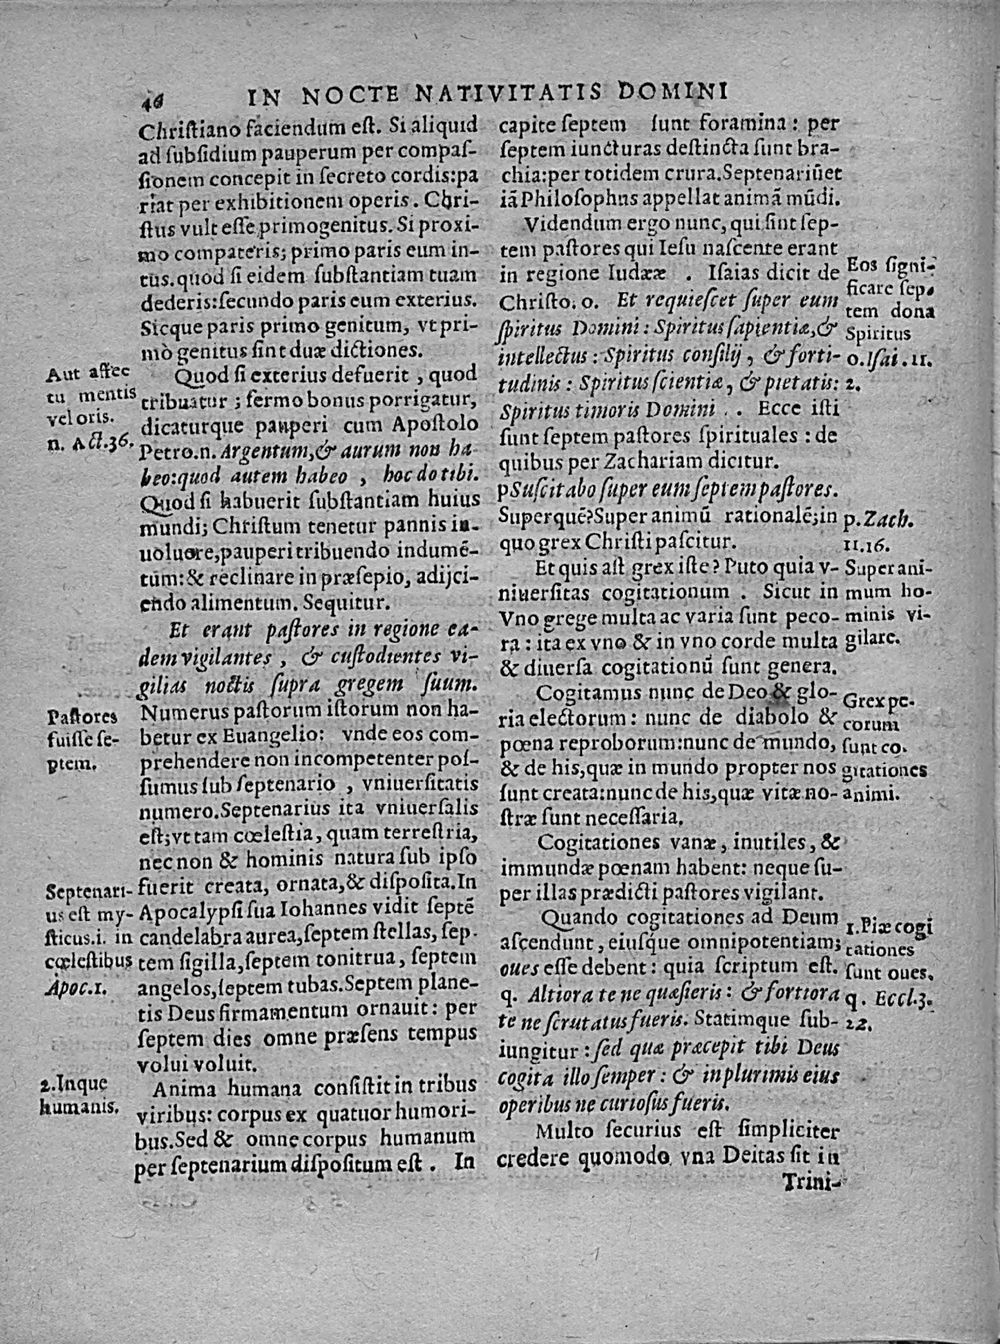 46
IN NOCTE NATIVITATIS DOMINI
Chriſtiano faciendum eſt. Si aliquid
ad ſubſidium pauperum per compaſ-
ſionem concepit in ſecreto cordis:pa
riat per exhibitionem operis. Chri-
ſtus vult eſſe primogenitus. Si proxi-
mo compateris; primo paris eum in-
tus. quod ſi eidem ſubſtantiam tuam
dederis:ſecundo paris eum exterius.
Sicque paris primo genitum, vt pri-
mò genitus ſint duæ dictiones.
Quod ſi exterius defuerit, quod
tribuatur; ſermo bonus porrigatur,
dicaturque pauperi cum Apoſtolo
Petro.n. Argentum,& aurum non ha
beo:quod autem habeo, hoc do tibi.
Quod ſi habuerit ſubſtantiam huius
mundi; Chriſtum tenetur pannis in-
uoluere,pauperi tribuendo indumẽ-
tum: & reclinare in præſepio, adijci-
endo alimentum. Sequitur.
Et erant paſtores in regione ea-
dem vigilantes, & cuſtodientes vi-
gilias noctis ſupra gregem ſuum.
Numerus paſtorum iſtorum non ha-
betur ex Euangelio: vnde eos com-
prehendere non incompetenter poſ-
ſumus ſub ſeptenario, vniuerſitatis
numero.Septenarius ita vniuerſalis
eſt;vt tam cœleſtia, quam terreſtria,
nec non & hominis natura ſub ipſo
fuerit creata, ornata,& diſpoſita.In
Apocalypſi ſua Iohannes vidit ſeptẽ
candelabra aurea,ſeptem ſtellas, ſep-
tem ſigilla,ſeptem tonitrua, ſeptem
angelos,ſeptem tubas.Septem plane-
tis Deus firmamentum ornauit: per
ſeptem dies omne præſens tempus
volui voluit.
Anima humana conſiſtit in tribus
viribus: corpus ex quatuor humori-
bus.Sed & omne corpus humanum
per ſeptenarium diſpoſitum eſt. In
Aut affec
tu mentis
vel oris.
n. Act.36.
Paſtores
fuiſſe ſe-
ptem.
Septenari-
us eſt my-
ſticus.1. in
cœleſtibus
Apoc.1.
2.Inque
humanis.
capite ſeptem ſunt foramina: per
ſeptem iuncturas deſtincta ſunt bra-
chia:per totidem crura.Septenariũ et
iã Philoſophus appellat animã mũdi.
Videndum ergo nunc, qui ſint ſep-
tem paſtores qui Ieſu naſcente erant
in regione Iudææ. Iſaias dicit de
Chriſto. o. Et requieſcet ſuper eum
ſpiritus Domini: Spiritus ſapientiæ,&
intellectus: Spiritus conſilij, & forti-
tudinis: Spiritus ſcientiæ, & pietatis:
Spiritus timoris Domini.. Ecce iſti
ſunt ſeptem paſtores ſpirituales: de
quibus per Zachariam dicitur.
p Suſcitabo ſuper eum ſeptem paſtores.
Super quẽ?Super animũ rationalẽ;in
quo grex Chriſti paſcitur.
Et quis aſt grex iſte? Puto quia v-
niuerſitas cogitationum. Sicut in
Vno grege multa ac varia ſunt peco-
ra: ita ex vno & in vno corde multa
& diuerſa cogitationũ ſunt genera.
Cogitamus nunc de Deo & glo-
ria electorum: nunc de diabolo &
pœna reproborum:nunc de mundo,
& de his,quæ in mundo propter nos
ſunt creata:nunc de his,quæ vitæ no-
ſtræ ſunt neceſſaria.
Cogitationes vanæ, inutiles, &
immundæ pœnam habent: neque ſu-
per illas prædicti paſtores vigilant.
Quando cogitationes ad Deum
aſcendunt, eiuſque omnipotentiam;
oues eſſe debent: quia ſcriptum eſt.
q. Altiora te ne quæſieris: & fortiora
te ne ſcrutatus fueris. Statimque ſub-
iungitur: ſed quæ præcepit tibi Deus
cogita illo ſemper: & in plurimis eius
operibus ne curioſus fueris.
Multo ſecurius eſt ſimpliciter
credere quomodo vna Deitas ſit in
Trini-
Eos ſigni-
ficare ſep-
tem dona
Spiritus
o.Iſai.11.
2.
p.Zach.
11.16.
Super ani-
mum ho-
minis vi-
gilare.
Grex pe-
corum
ſunt co-
gitationes
animi.
1.Piæ cogi
tationes
ſunt oues.
q. Eccl.3.
22.